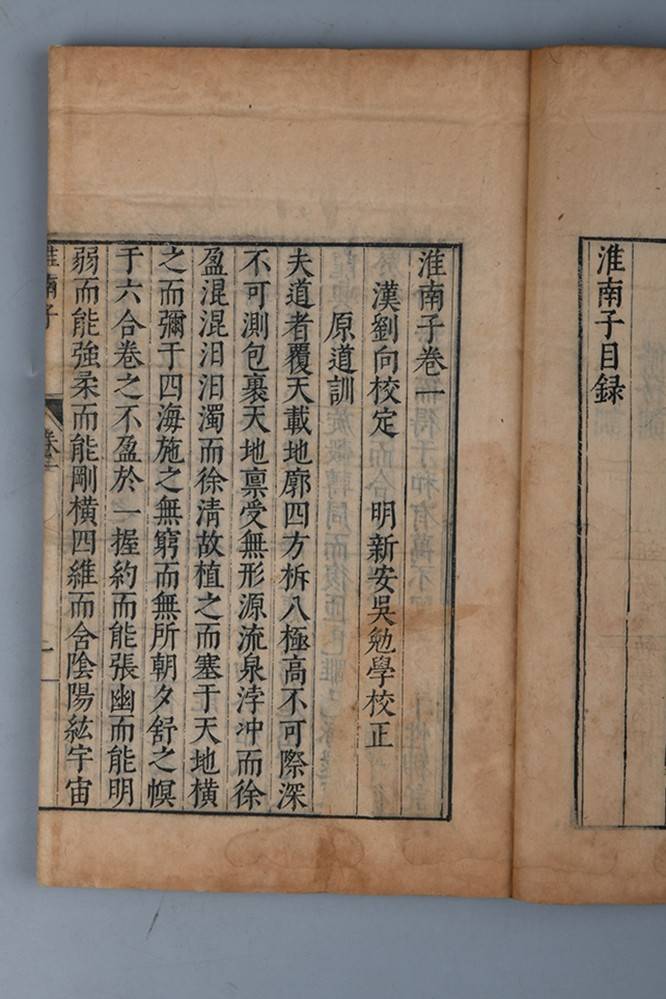 淮南子目録
淮南子卷一
漢劉向校定 明新安吳勉學校正
原道訓
夫道者覆天載地廓四方柝八極高不可際深
不可測包裹天地禀受無形源流泉浡冲而徐
盈混混汩汩濁而徐清故植之而塞于天地橫
之而彌于四海施之無窮而無所朝夕舒之幎
于六合卷之不盈於一握約而能張幽而能明
弱而能強柔而能剛橫四維而含陰陽紘宇宙
淮南子 卷一 一